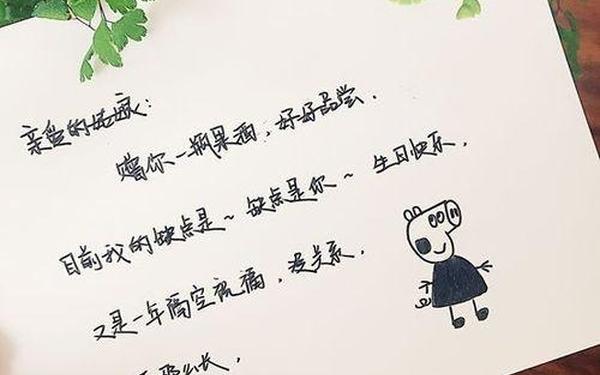 亲爱的姑娘：
赠你一瓶果酒，好好品尝．
目前我的缺点是~ 缺点是你~ 生日快乐．
又是一年隔空祝福，没关系．
长．